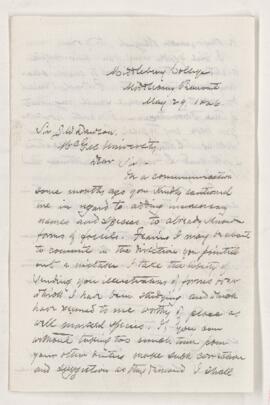 Middlebury College
Middlebury Vermont
May 29, 1886
Sir J. W. Dawson,
McGill University
Dear Sir:-
In a communication
some months ago you kindly cautioned
me in regard to adding unnecessary
names and species to already known
forms of fossils. Fearing I may be about
to commit in the direction you pointed
out a mistake I take the liberty of
sending you illustrations of forms over
which I have been studying and which
have seemed to me worthy of place as
well marked species. If you can
without taking too much time from
your other duties make such corrections
and suggestions as they demand I shall